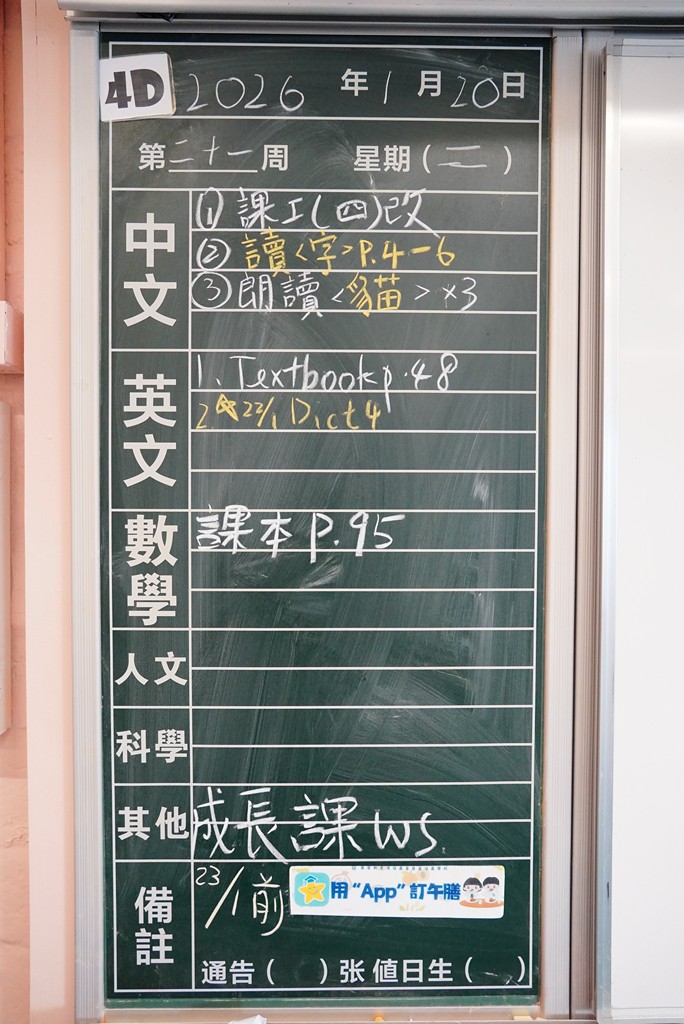 4D 2026 年 1 月 20 日
第 二十一 周 星期 ( 二 )
中文
① 課工(四)改
② 讀<字>P.4-6
③ 朗讀<貓>×3
英文
1. Textbook p.48
2. ☆22/1 Dict 4
數學
課本 P.95
人文
科學
其他
成長課 WS
備註
23/1前
用“App”訂午膳
通告 ( ) 张 值日生 ( )